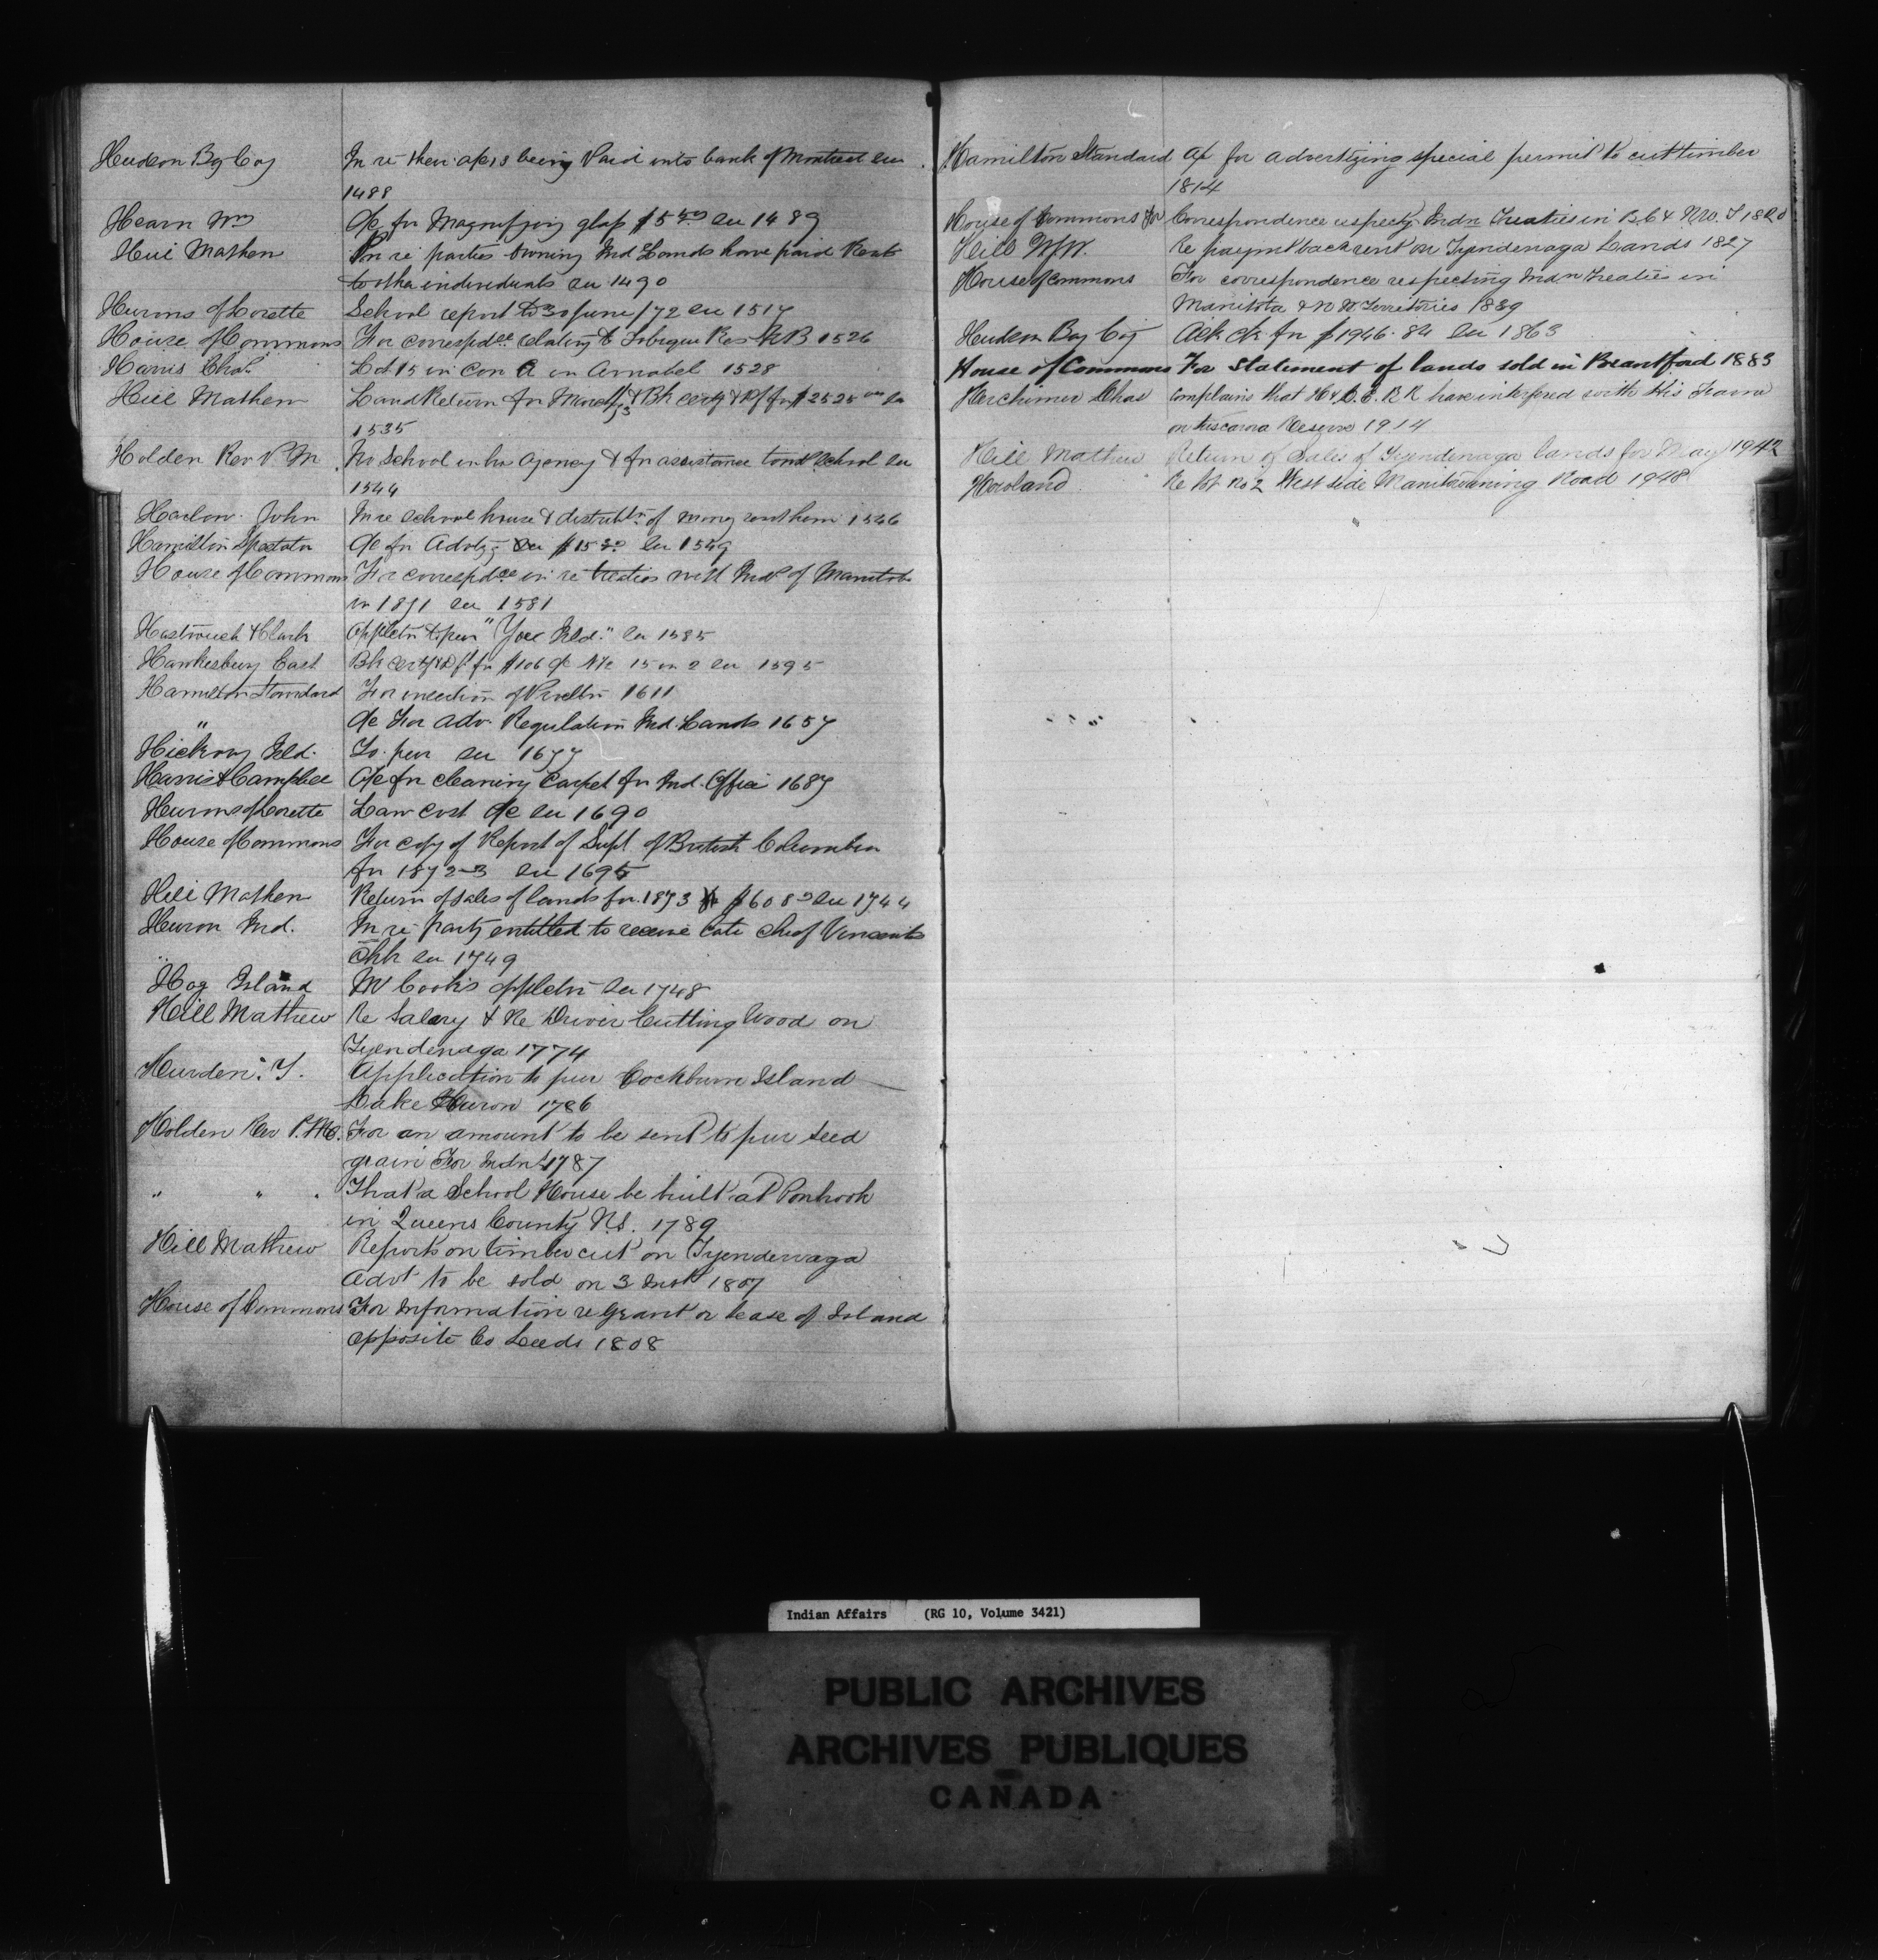 Hudson By Coy In re their a/cs being Paid into bank of Montreal see
1488
Hearn Wm a/c for Magnifying glass $5 50 see 1489
Hill Mathew In re parties owning Ind Lands have paid Rents
to other individuals see 1490
Hurons of Lorette School report to 30 June /72 see 1517
House of Commons For correspdce relating to Tobique Res N.B 1526
Harris Chas. Lot 15 in Con A in Amabel 1528
Hill Mathew Land Return for March /73 & Bk certf & Dft for $2525 see
1535
Holden Rev P M No School in his Agency & for assistance towds School see
1544
Harlow John In re school house & distribtn of money 1546
Hamilton Spectator a/c for Advtzg $15 see 1549
House of Commons For correspdce in re treaties with Inds of Manitoba
in 1871 see 1581
& Clark Appletn to pur see 1585
Hawkesbury East Bk certf & Df for $106 a/c 15 in 2 see 1595
Hamilton Standard For insertion of 1611
" a/c For adv. Regulation Ind. Lands 1657
Hickory Isld. To pur see 1677
Harris & Campbell A/c for cleaning Carpet for Ind. Office 1687
Hurons of Lorette Law cost a/c see 1690
House of Commons For copy of Report of Supt of British Columbia
for 1872-3 see 1695
Hill Mathew Return of sales of lands for 1873 $608 see 1744
Huron Ind. In re party entitled to receive late chief Vincents
Chk see 1749
Hog Island W Cook's appletn see 1748
Hill Mathew Re Salary & Re Driver Cutting Wood on
Tyendenaga 1774
Hurden. T. Application to pur Cockburn Island
Lake Huron 1786
Holden Rev P. M. For an amount to be sent to pur seed
grain For Indns 1787
" " . That a School House be built at Ponhook
in Queens County N.S. 1789
Hill Mathew Reports on timber cut on Tyendenaga
Advt to be sold on 3 Inst 1807
House of Commons For Information re grant or lease of Island
opposite Co Leeds 1808
Hamilton Standard A/c for advertizing special permit to cut timber
1814
House of Commons For Correspondence respectg Indn Treaties in B.C & N.W. T 1820
Hill W.W. Re paymt back rent on Tyendenaga Lands 1827
House of Commons For correspondence respecting Indn Treaties in
Manitoba & N W Territories 1839
Hudson Bay Coy Ack ck for $1946.84 see 1863
House of Commons For Statement of lands sold in Brantford 1883
Herchimer Chas Complains that H & L. E. R R have interfered with His Farm
on Tuscarora Reserve 1914
Hill Mathew Return of Sales of Tyendenaga lands for May 1942
Howland Re lot No 2 West side Manitowaning Road 1948
Indian Affairs (RG 10, Volume 3421)
PUBLIC ARCHIVES
ARCHIVES PUBLIQUES
CANADA